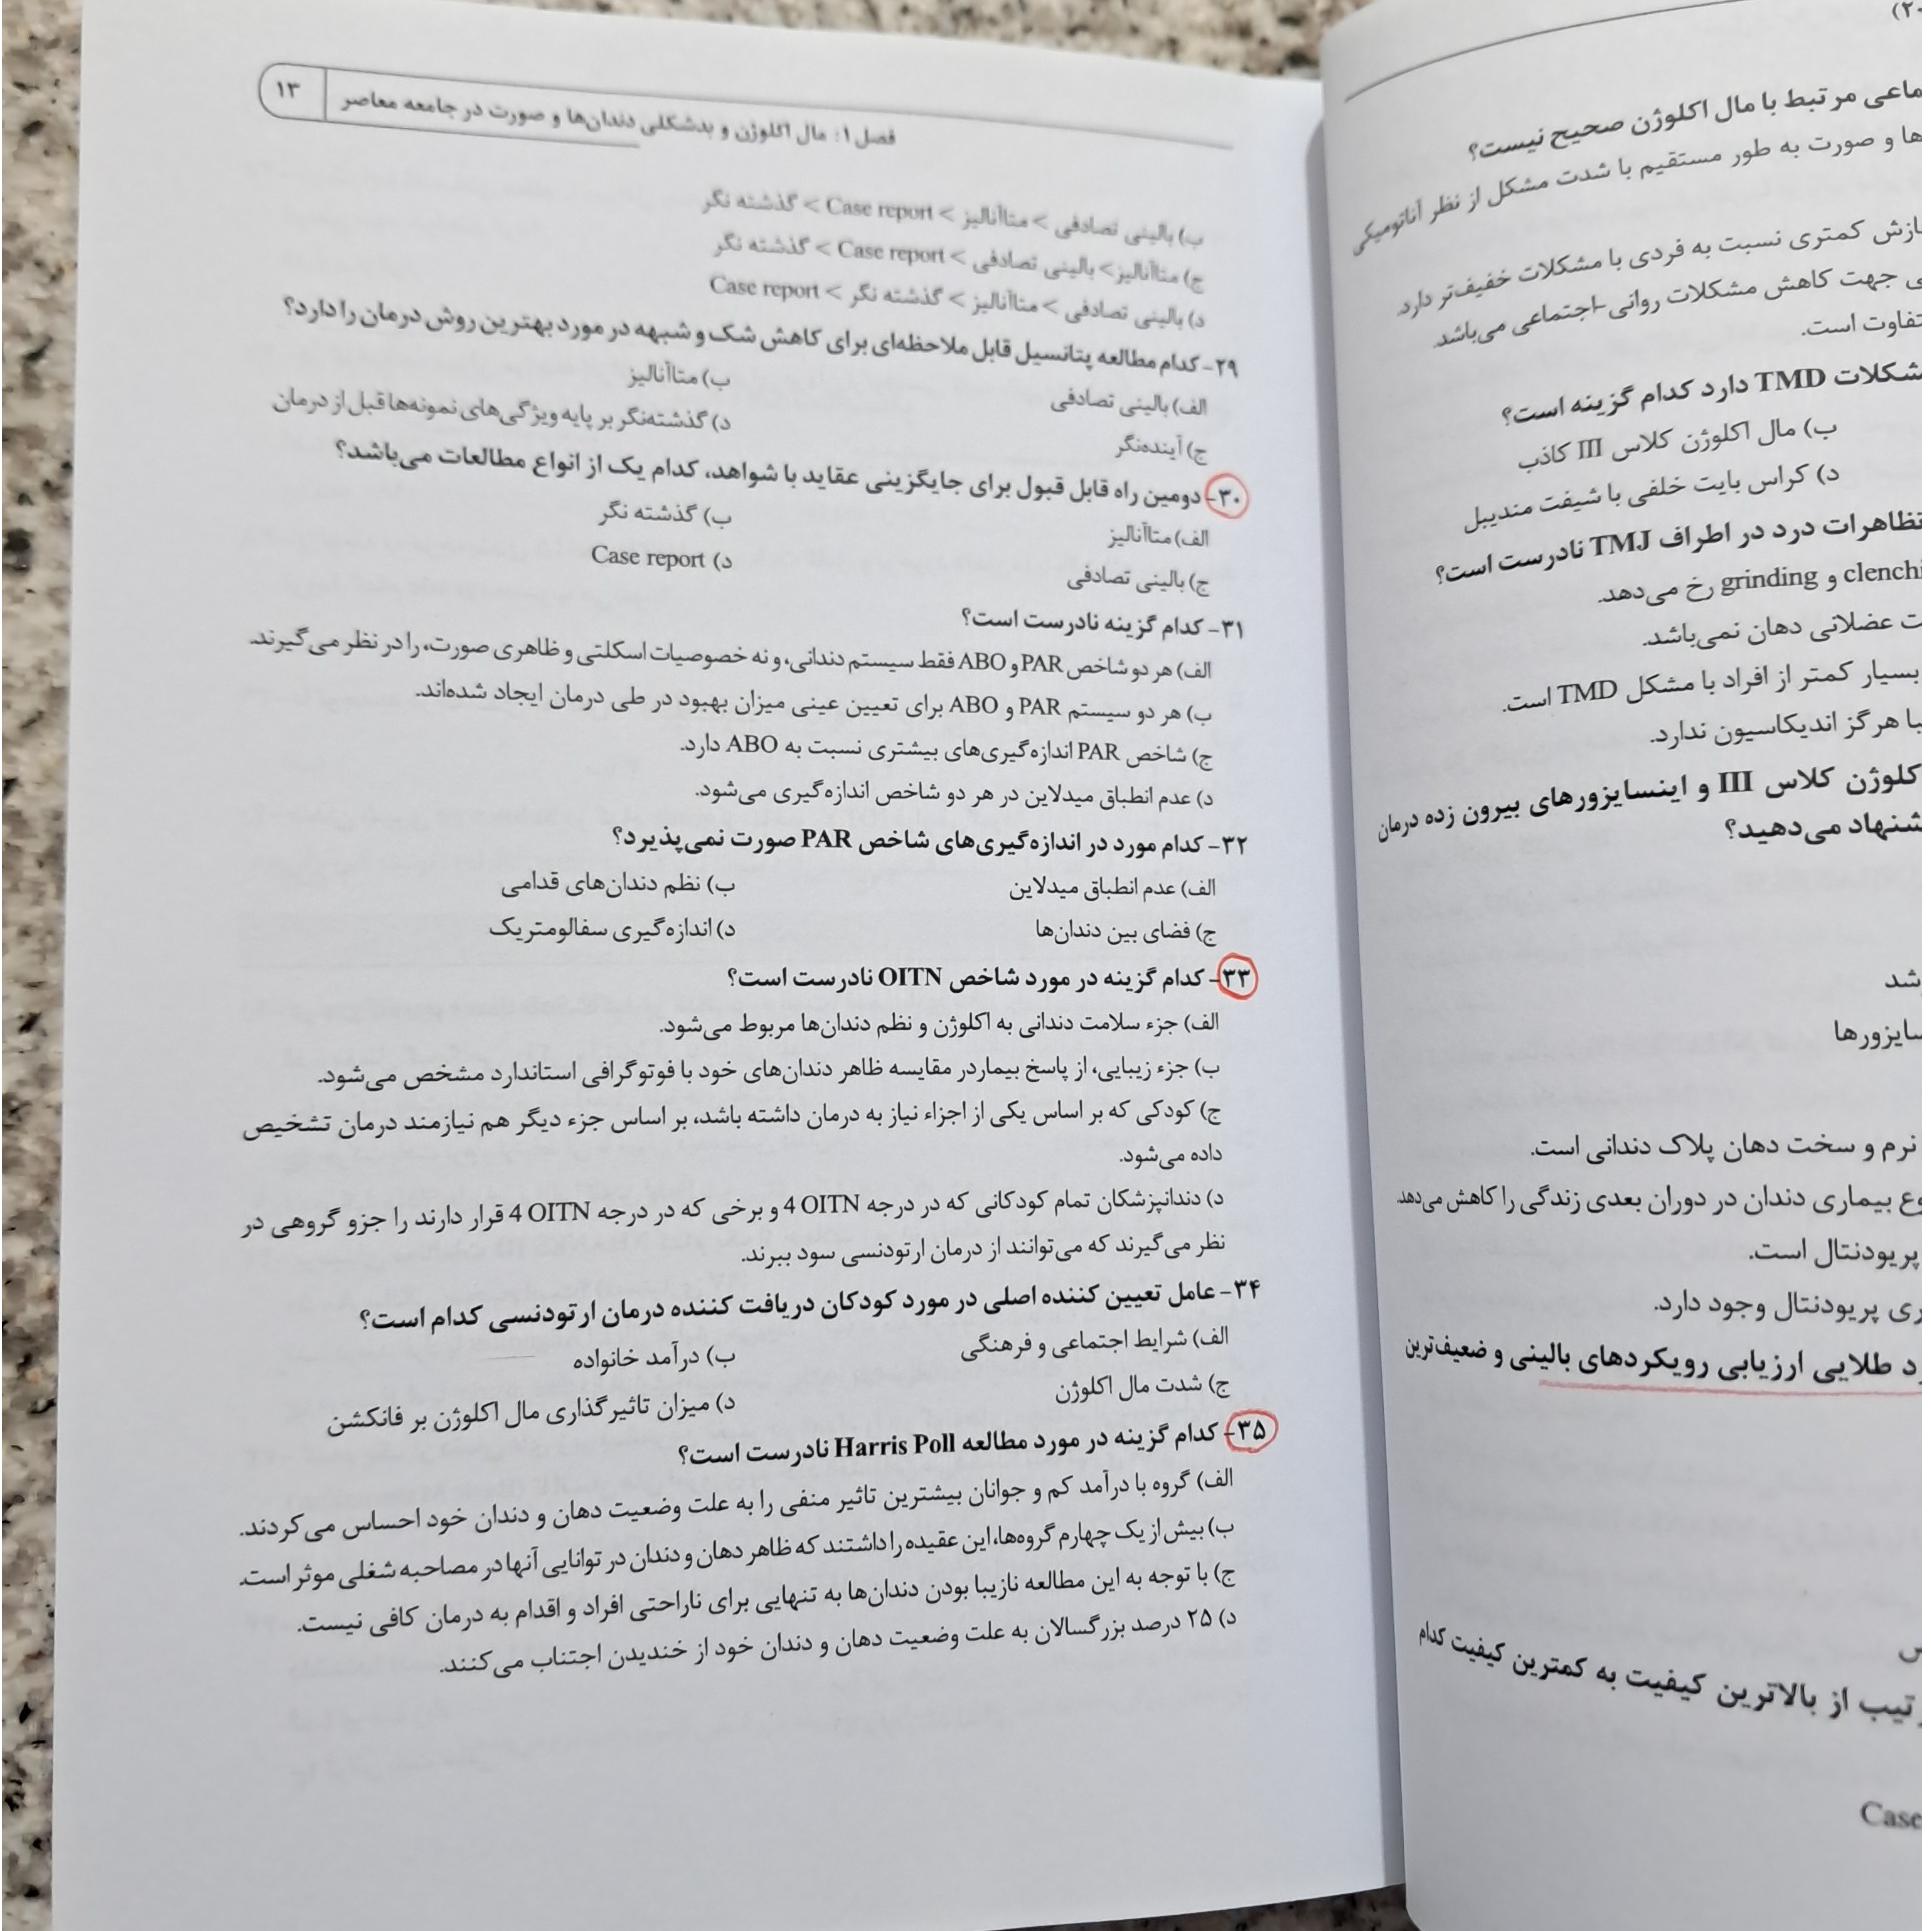 فصل ۱: مال اکلوژن و بدشکلی دندان‌ها و صورت در جامعه معاصر ۱۳
ب) بالینی تصادفی > متاآنالیز > Case report > گذشته نگر
ج) متاآنالیز> بالینی تصادفی > Case report > گذشته نگر
د) بالینی تصادفی > متاآنالیز > گذشته نگر > Case report
۲۹- کدام مطالعه پتانسیل قابل ملاحظه‌ای برای کاهش شک و شبهه در مورد بهترین روش درمان را دارد؟
الف) بالینی تصادفی ب) متاآنالیز
ج) آینده‌نگر د) گذشته‌نگر بر پایه ویژگی‌های نمونه‌ها قبل از درمان
۳۰- دومین راه قابل قبول برای جایگزینی عقاید با شواهد، کدام یک از انواع مطالعات می‌باشد؟
الف) متاآنالیز ب) گذشته نگر
ج) بالینی تصادفی د) Case report
۳۱- کدام گزینه نادرست است؟
الف) هر دو شاخص PAR و ABO فقط سیستم دندانی، و نه خصوصیات اسکلتی و ظاهری صورت، را در نظر می‌گیرند.
ب) هر دو سیستم PAR و ABO برای تعیین عینی میزان بهبود در طی درمان ایجاد شده‌اند.
ج) شاخص PAR اندازه‌گیری‌های بیشتری نسبت به ABO دارد.
د) عدم انطباق میدلاین در هر دو شاخص اندازه‌گیری می‌شود.
۳۲- کدام مورد در اندازه‌گیری‌های شاخص PAR صورت نمی‌پذیرد؟
الف) عدم انطباق میدلاین ب) نظم دندان‌های قدامی
ج) فضای بین دندان‌ها د) اندازه‌گیری سفالومتریک
۳۳- کدام گزینه در مورد شاخص OITN نادرست است؟
الف) جزء سلامت دندانی به اکلوژن و نظم دندان‌ها مربوط می‌شود.
ب) جزء زیبایی، از پاسخ بیماردر مقایسه ظاهر دندان‌های خود با فوتوگرافی استاندارد مشخص می‌شود.
ج) کودکی که بر اساس یکی از اجزاء نیاز به درمان داشته باشد، بر اساس جزء دیگر هم نیازمند درمان تشخیص
داده می‌شود.
د) دندانپزشکان تمام کودکانی که در درجه 4 OITN و برخی که در درجه 4 OITN قرار دارند را جزو گروهی در
نظر می‌گیرند که می‌توانند از درمان ارتودنسی سود ببرند.
۳۴- عامل تعیین کننده اصلی در مورد کودکان دریافت کننده درمان ارتودنسی کدام است؟
الف) شرایط اجتماعی و فرهنگی ب) درآمد خانواده
ج) شدت مال اکلوژن د) میزان تاثیرگذاری مال اکلوژن بر فانکشن
۳۵- کدام گزینه در مورد مطالعه Harris Poll نادرست است؟
الف) گروه با درآمد کم و جوانان بیشترین تاثیر منفی را به علت وضعیت دهان و دندان خود احساس می‌کردند.
ب) بیش از یک چهارم گروه‌ها، این عقیده را داشتند که ظاهر دهان و دندان در توانایی آنها در مصاحبه شغلی موثر است.
ج) با توجه به این مطالعه نازیبا بودن دندان‌ها به تنهایی برای ناراحتی افراد و اقدام به درمان کافی نیست.
د) ۲۵ درصد بزرگسالان به علت وضعیت دهان و دندان خود از خندیدن اجتناب می‌کنند.
مرتبط با مال اکلوژن صحیح نیست؟
ها و صورت به طور مستقیم با شدت مشکل از نظر آناتومیکی
کمتری نسبت به فردی با مشکلات خفیف‌تر دارد.
جهت کاهش مشکلات روانی-اجتماعی می‌باشد.
است.
TMD دارد کدام گزینه است؟
ب) مال اکلوژن کلاس III کاذب
د) کراس بایت خلفی با شیفت مندیبل
درد در اطراف TMJ نادرست است؟
و grinding رخ می‌دهد.
عضلانی دهان نمی‌باشد.
بسیار کمتر از افراد با مشکل TMD است.
هرگز اندیکاسیون ندارد.
کلاس III و اینسایزورهای بیرون زده درمان
می‌دهید؟
نرم و سخت دهان پلاک دندانی است.
بیماری دندان در دوران بعدی زندگی را کاهش می‌دهد.
پریودنتال است.
پریودنتال وجود دارد.
طلایی ارزیابی رویکردهای بالینی و ضعیف‌ترین
از بالاترین کیفیت به کمترین کیفیت کدام
Case